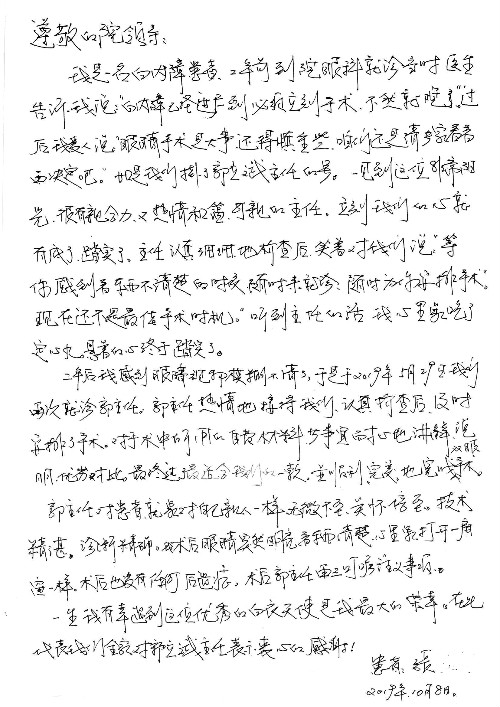 尊敬的院领导:
我是一名白内障患者,二年前到院眼科就诊,当时医生
告诉我说:"白内障已经严重到必须立刻手术,不然就晚了。"过
后我爱人说:"眼睛手术是大事,还得慎重些,咱们还是请专家看看
再决定吧。"于是我们挂了郭立斌主任的号。一见到这位
很有亲合力,又热情和蔼,可亲的主任,立刻我们的心就
有底了,踏实了。主任认真细细地检查后,笑着对我们说:"等
你感到看东西不清楚的时候,随时来就诊,随时为你安排手术。
现在还不是最佳手术时机。"听到主任的话,我心里象吃了
定心丸,悬着的心终于踏实了。
二年后我感到眼睛视物模糊不清了,于是于2019年5月29日我们
再次就诊郭主任。郭主任热情地接待我们,认真检查后,及时
安排了手术。对手术中所用的自费材料等事宜耐心地讲解,说
明,优劣对比。最终选最适合我们的一款,并顺利完美地完成双眼手术
郭主任对患者就象对自己亲人一样,无微不至,关怀倍至。技术
精湛。诊断精确。术后眼睛突然明亮,看东西清楚,心里象打开一扇
窗一样。术后也没有任何后遗症,术后郭主任再三叮嘱注意事项。
一生我有幸遇到这位优秀的白衣天使是我最大的荣幸。在此
代表我们全家对郭立斌主任表示衷心的感谢!
患者:
2019年10月8日。